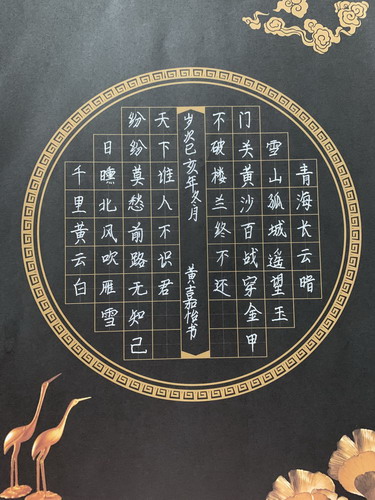 青海长云暗
雪山孤城遥望玉
门关黄沙百战穿金甲
不破楼兰终不还
千里黄云白
日曛北风吹雁雪
纷纷莫愁前路无知己
天下谁人不识君
岁次己亥年冬月 黄嘉怡书